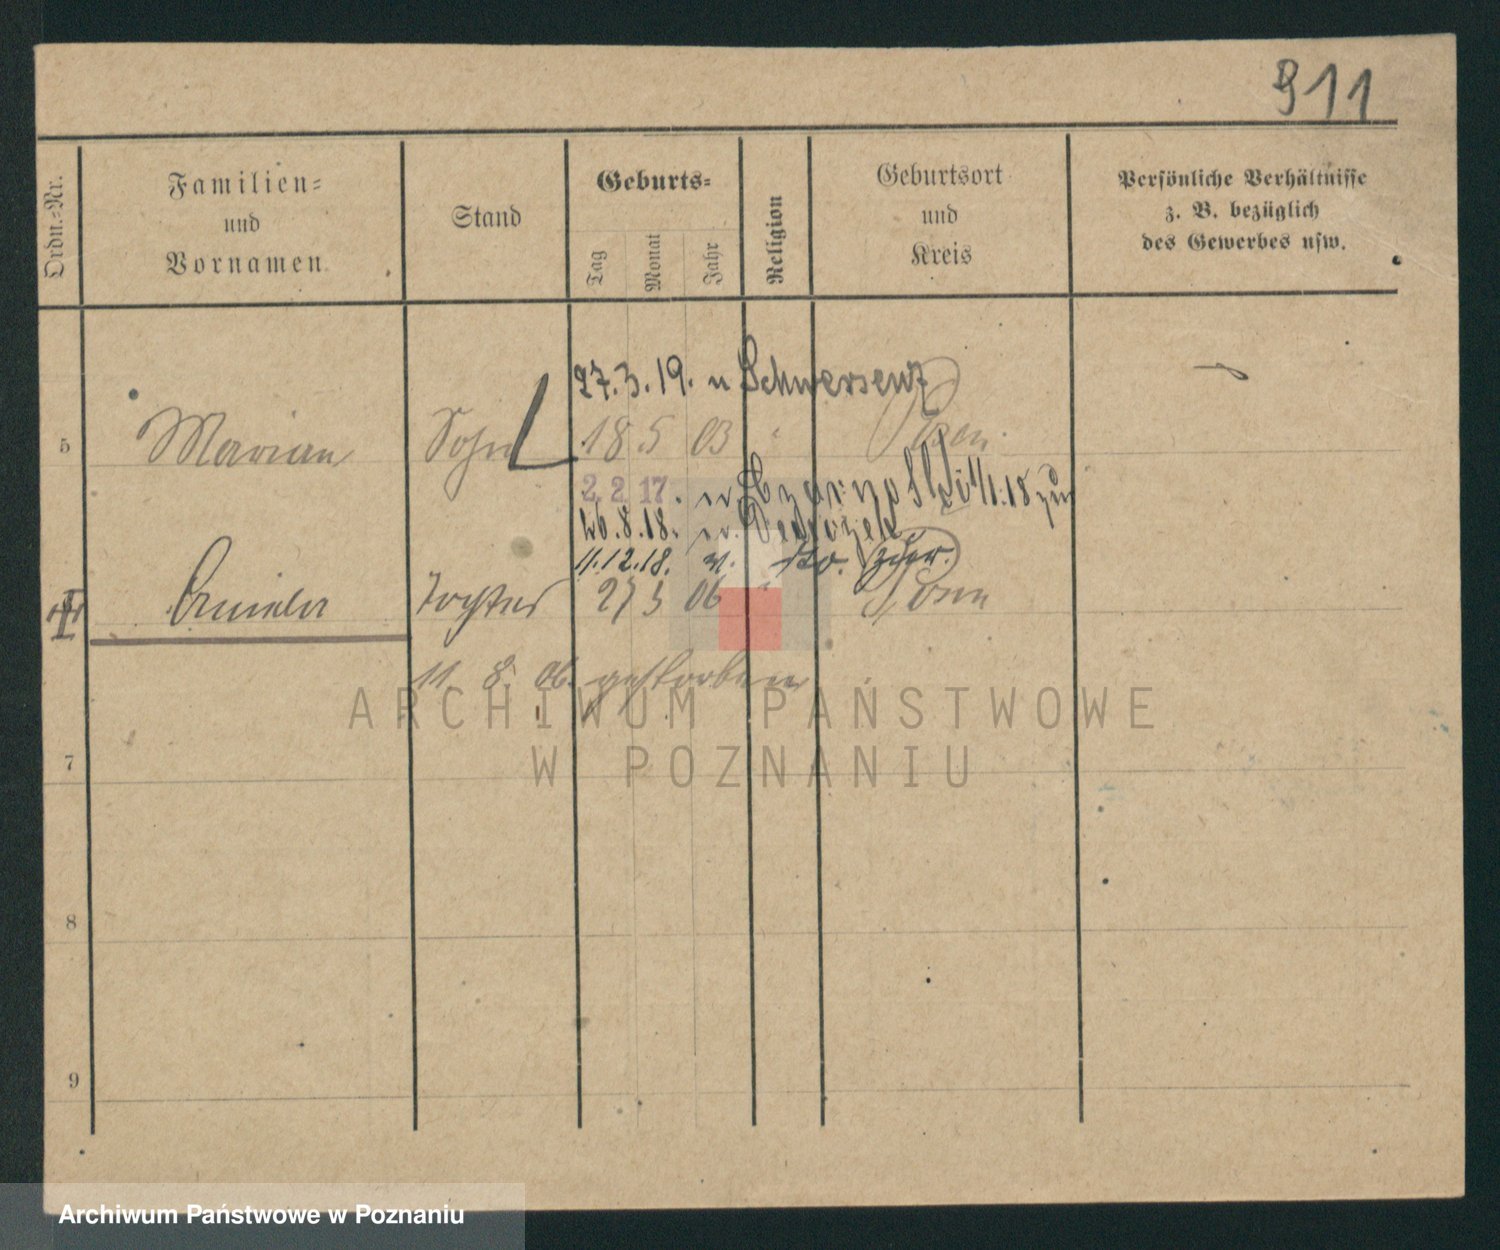 911
Ordn.=Nr.
Familien=
und
Vornamen
Stand
Geburts=
Tag
Monat
Jahr
Religion
Geburtsort
und
Kreis
Persönliche Verhältnisse
z. B. bezüglich
des Gewerbes usw.
27.3.19. n Schwersenz
5 Marian Sohn 18 5 03 Posen
2 2 17. n.
26.8.18. n.
11.12.18. v. do. zur.
Tochter 27 5 06 Posen
11. 8. 06. gestorben
ARCHIWUM PAŃSTWOWE
W POZNANIU
7
8
9
Archiwum Państwowe w Poznaniu